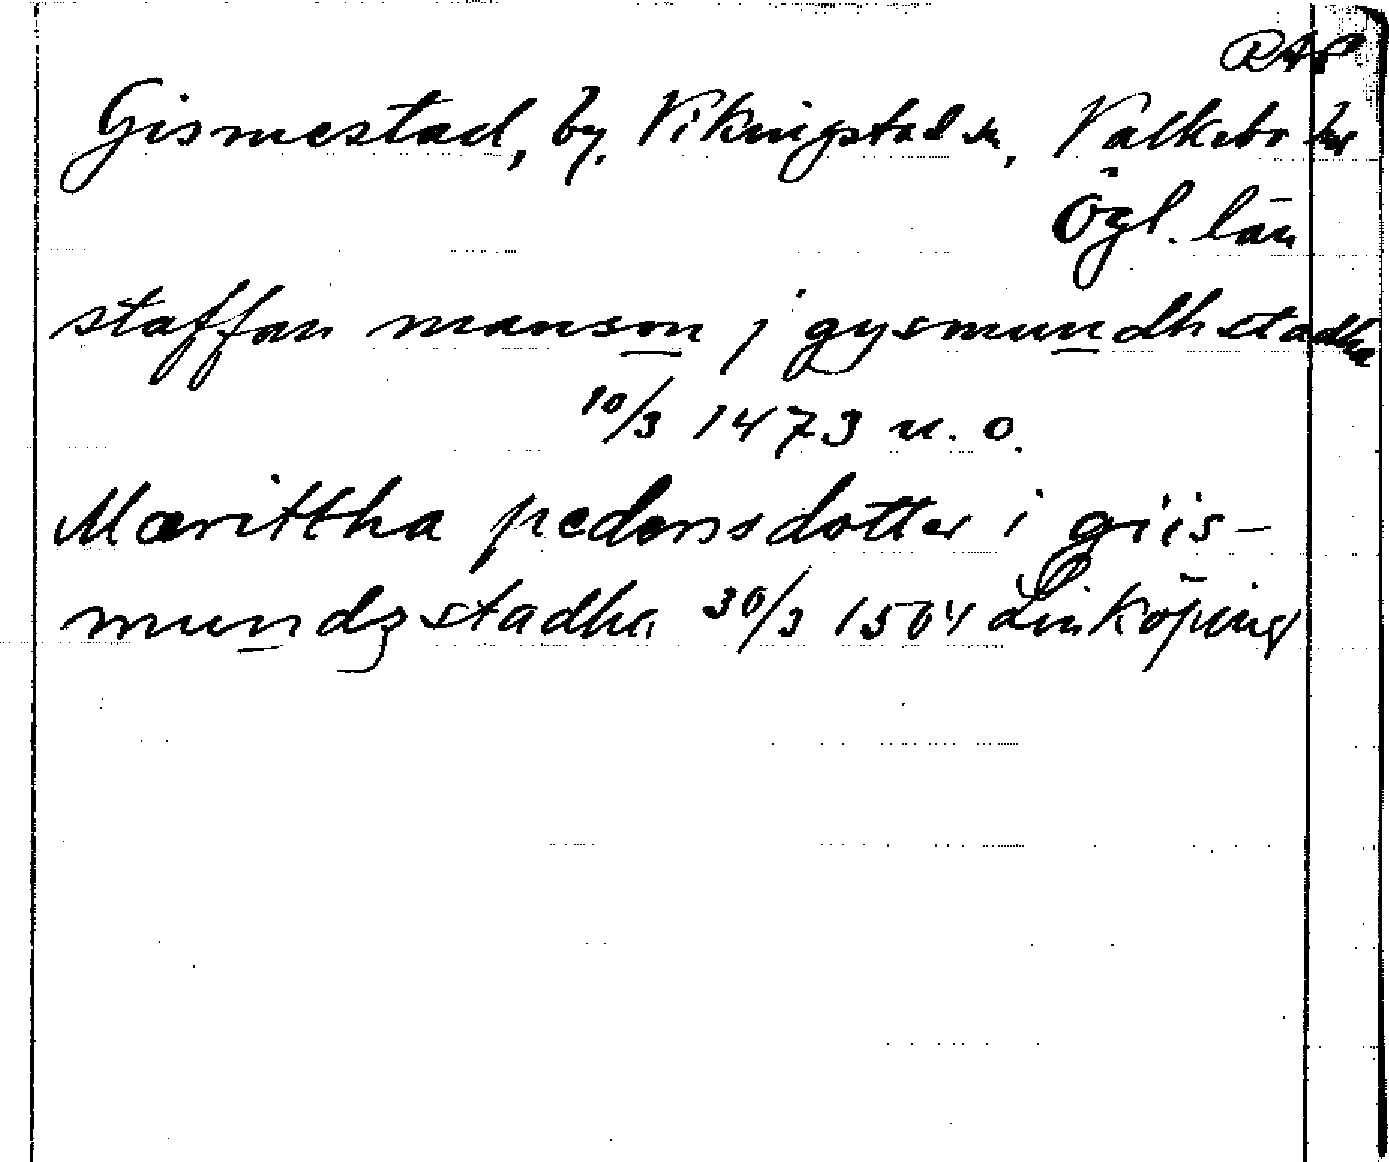 RAP
Gismestad, by, Vikingstad sn, Valkebo hd
Ögl. län
staffan manson j gysmundhstadha
10/3 1473 u. o.
Mærittha pedersdotter i giis-
mundzstadha 30/3 1504 Linköping